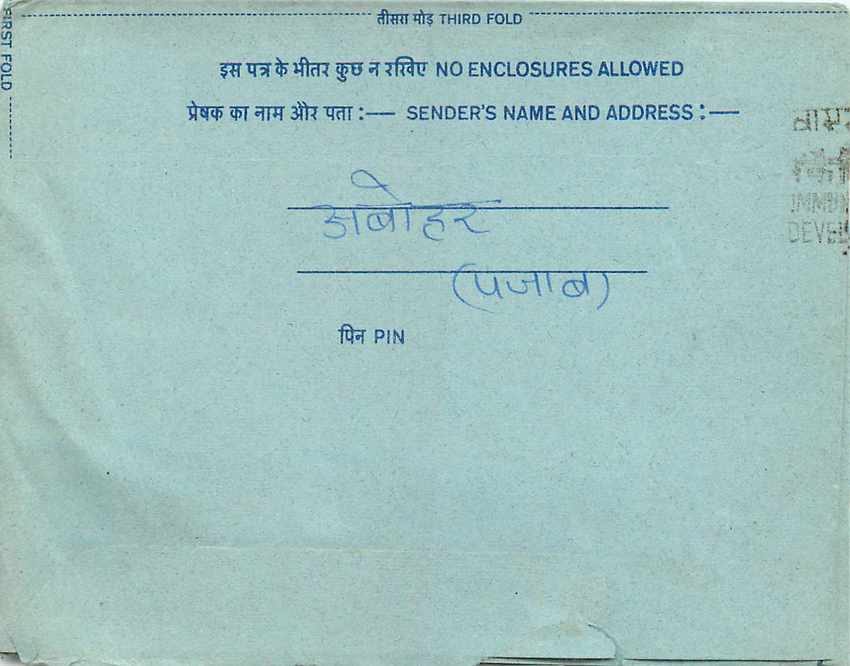 तीसरा मोड़ THIRD FOLD
FIRST FOLD
इस पत्र के भीतर कुछ न रखिए NO ENCLOSURES ALLOWED
प्रेषक का नाम और पता :— SENDER'S NAME AND ADDRESS :—
अबोहर
(पजाब)
पिन PIN
IMMUN
DEVEL